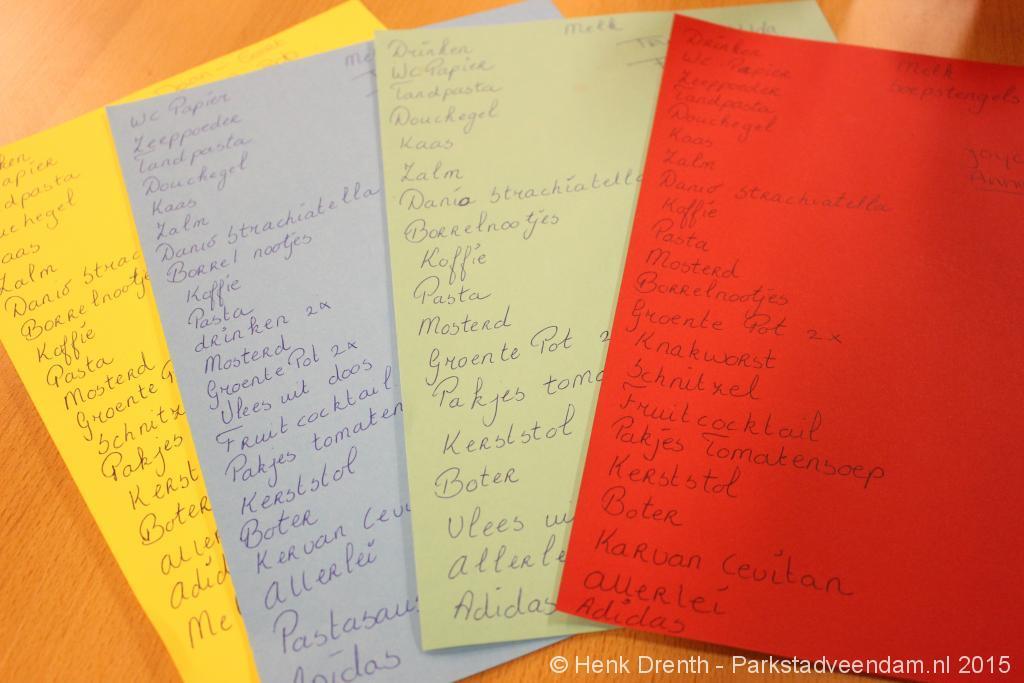 Zalm
Danio Strac
Borrelnootje
Koffie
Pasta
Mosterd
Groente P
Schnitz
Pakjes
Kerst
Boter
aller
adid
Me
WC Papier
Zeeppoeder
Tandpasta
Douchegel
Kaas
Zalm
Danio Strachiatella
Borrel nootjes
Koffie
Pasta
drinken 2x
Mosterd
Groente Pot 2x
Vlees uit doos
Fruitcocktail
Pakjes tomaten
Kerststol
Boter
Kervan Cevi
Allerlei
Pastasaus
Adidas
Drinken Melk
WC Papier
Tandpasta
Douchegel
Kaas
Zalm
Danio Strachiatella
Borrelnootjes
Koffie
Pasta
Mosterd
Groente Pot 2
Pakjes toma
Kerststol
Boter
Vlees ui
Allerle
Adidas
Drinken Melk
WC Papier Soepstengels
Zeeppoeder
Tandpasta
Douchegel
Kaas
Zalm
Danio Strachiatella
Koffie
Pasta
Mosterd
Borrelnootjes
Groente Pot 2x
Knakworst
Schnitzel
Fruitcocktail
Pakjes Tomatensoep
Kerststol
Boter
Karvan Cevitan
allerlei
Adidas
© Henk Drenth - Parkstadveendam.nl 2015